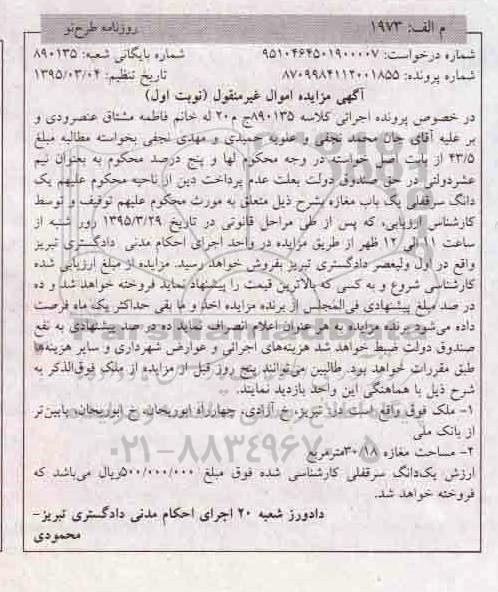 م الف: ۱۹۷۳
روزنامه طرح‌نو
شماره درخواست: ۹۵۱۰۴۶۴۵۰۱۹۰۰۰۰۷
شماره بایگانی شعبه: ۸۹۰۱۳۵
شماره پرونده: ۸۷۰۹۹۸۴۱۱۲۰۰۱۸۵۵
تاریخ تنظیم: ۱۳۹۵/۰۳/۰۴
آگهی مزایده اموال غیرمنقول (نوبت اول)
در خصوص پرونده اجرائی کلاسه ۸۹۰۱۳۵ج م۲۰ له خانم فاطمه مشتاق عنصرودی و
بر علیه آقای جان محمد نجفی و علویه حمیدی و مهدی نجفی بخواسته مطالبه مبلغ
۴۳/۵ از بابت اصل خواسته در وجه محکوم لها و پنج درصد محکوم به بعنوان نیم
عشردولتی در حق صندوق دولت بعلت عدم پرداخت دین از ناحیه محکوم علیهم یک
دانگ سرقفلی یک باب مغازه بشرح ذیل متعلق به مورث محکوم علیهم توقیف و توسط
کارشناس ارزیابی، که پس از طی مراحل قانونی در تاریخ ۱۳۹۵/۳/۲۹ روز شنبه از
ساعت ۱۱ الی ۱۲ ظهر از طریق مزایده در واحد اجرای احکام مدنی دادگستری تبریز
واقع در اول ولیعصر دادگستری تبریز بفروش خواهد رسید. مزایده از مبلغ ارزیابی شده
کارشناسی شروع و به کسی که بالاترین قیمت را پیشنهاد نماید فروخته خواهد شد و ده
در صد مبلغ پیشنهادی فی‌المجلس از برنده مزایده اخذ و ما بقی حداکثر یک ماه فرصت
داده می‌شود برنده مزایده به هر عنوان اعلام انصراف نماید ده در صد پیشنهادی به نفع
صندوق دولت ضبط خواهد شد هزینه‌های اجرائی و عوارض شهرداری و سایر هزینه‌ها
طبق مقررات خواهد بود. طالبین می‌توانند پنج روز قبل از مزایده از ملک فوق‌الذکر به
شرح ذیل با هماهنگی این واحد بازدید نمایند.
۱- ملک فوق واقع است در: تبریز، خ آزادی، چهارراه ابوریحان، خ ابوریحان، پایین‌تر
از بانک ملی
۲- مساحت مغازه ۳۰/۱۸مترمربع
ارزش یک‌دانگ سرقفلی کارشناسی شده فوق مبلغ ۵۰۰/۰۰۰/۰۰۰ریال می‌باشد که
فروخته خواهد شد.
دادورز شعبه ۲۰ اجرای احکام مدنی دادگستری تبریز-
محمودی
۰۲۱-۸۸۳۴۹۶۷۰